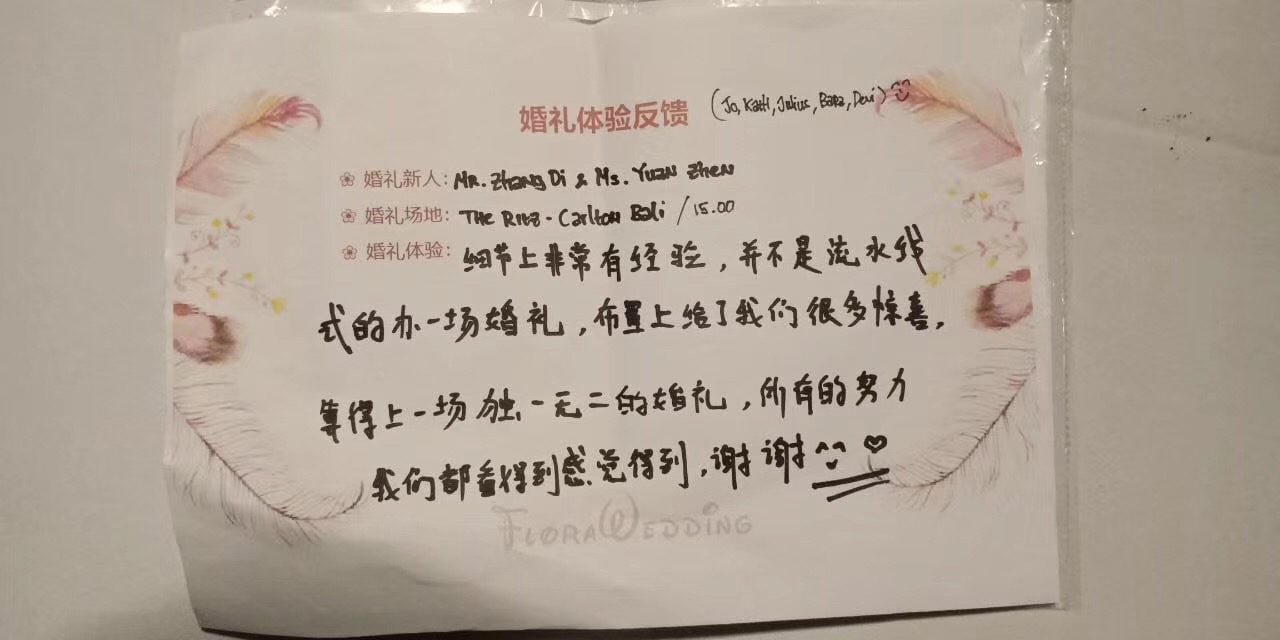 婚礼体验反馈 (Jo, Katti, Julius, Bara, Devi)
婚礼新人: MR. Zhang Di & Ms. Yuan Zhen
婚礼场地: THE RITZ - Carlton Bali / 15.00
婚礼体验: 细节上非常有经验，并不是流水线
式的办一场婚礼，布置上给了我们很多惊喜.
算得上一场独一无二的婚礼，所有的努力
我们都看得到感觉得到，谢谢
FLORA WEDDING